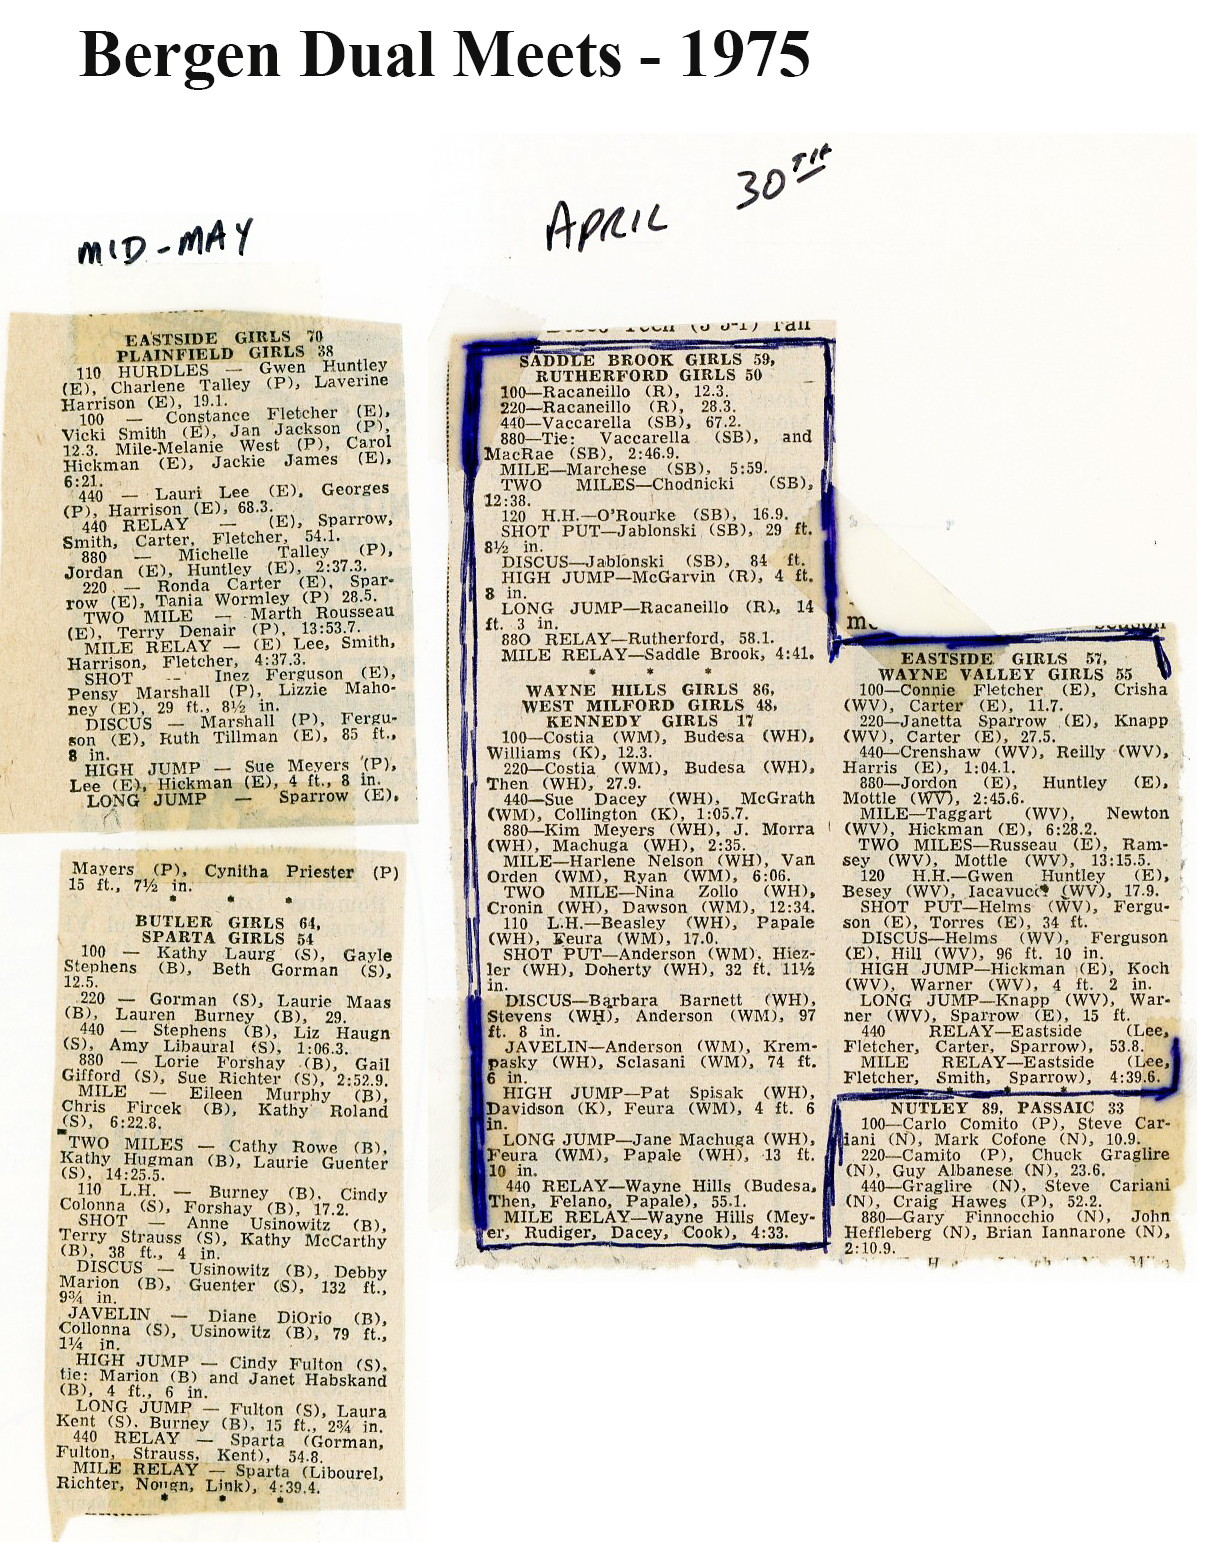 Bergen Dual Meets - 1975
MID-MAY
EASTSIDE GIRLS 70
PLAINFIELD GIRLS 38
110 HURDLES — Gwen Huntley
(E), Charlene Talley (P), Laverine
Harrison (E), 19.1.
100 — Constance Fletcher (E),
Vicki Smith (E), Jan Jackson (P),
12.3. Mile-Melanie West (P), Carol
Hickman (E), Jackie James (E),
6:21.
440 — Lauri Lee (E), Georges
(P), Harrison (E), 68.3.
440 RELAY — (E), Sparrow,
Smith, Carter, Fletcher, 54.1.
880 — Michelle Talley (P),
Jordan (E), Huntley (E), 2:37.3.
220 — Ronda Carter (E), Spar-
row (E), Tania Wormley (P) 28.5.
TWO MILE — Marth Rousseau
(E), Terry Denair (P), 13:53.7.
MILE RELAY — (E) Lee, Smith,
Harrison, Fletcher, 4:37.3.
SHOT — Inez Ferguson (E),
Pensy Marshall (P), Lizzie Maho-
ney (E), 29 ft., 8½ in.
DISCUS — Marshall (P), Fergu-
son (E), Ruth Tillman (E), 85 ft.,
8 in.
HIGH JUMP — Sue Meyers (P),
Lee (E), Hickman (E), 4 ft., 8 in.
LONG JUMP — Sparrow (E),
Mayers (P), Cynitha Priester (P)
15 ft., 7½ in.
* * *
BUTLER GIRLS 64,
SPARTA GIRLS 54
100 — Kathy Laurg (S), Gayle
Stephens (B), Beth Gorman (S),
12.5.
220 — Gorman (S), Laurie Maas
(B), Lauren Burney (B), 29.
440 — Stephens (B), Liz Haugn
(S), Amy Libaural (S), 1:06.3.
880 — Lorie Forshay (B), Gail
Gifford (S), Sue Richter (S), 2:52.9.
MILE — Eileen Murphy (B),
Chris Fircek (B), Kathy Roland
(S), 6:22.8.
TWO MILES — Cathy Rowe (B),
Kathy Hugman (B), Laurie Guenter
(S), 14:25.5.
110 L.H. — Burney (B), Cindy
Colonna (S), Forshay (B), 17.2.
SHOT — Anne Usinowitz (B),
Terry Strauss (S), Kathy McCarthy
(B), 38 ft., 4 in.
DISCUS — Usinowitz (B), Debby
Marion (B), Guenter (S), 132 ft.,
9¾ in.
JAVELIN — Diane DiOrio (B),
Collonna (S), Usinowitz (B), 79 ft.,
1¼ in.
HIGH JUMP — Cindy Fulton (S),
tie: Marion (B) and Janet Habskand
(B), 4 ft., 6 in.
LONG JUMP — Fulton (S), Laura
Kent (S), Burney (B), 15 ft., 2¾ in.
440 RELAY — Sparta (Gorman,
Fulton, Strauss, Kent), 54.8.
MILE RELAY — Sparta (Libourel,
Richter, Link), 4:39.4.
* * *
APRIL 30TH
SADDLE BROOK GIRLS 59,
RUTHERFORD GIRLS 50
100—Racaneillo (R), 12.3.
220—Racaneillo (R), 28.3.
440—Vaccarella (SB), 67.2.
880—Tie: Vaccarella (SB), and
MacRae (SB), 2:46.9.
MILE—Marchese (SB), 5:59.
TWO MILES—Chodnicki (SB),
12:38.
120 H.H.—O'Rourke (SB), 16.9.
SHOT PUT—Jablonski (SB), 29 ft.
8½ in.
DISCUS—Jablonski (SB), 84 ft.
HIGH JUMP—McGarvin (R), 4 ft.
8 in.
LONG JUMP—Racaneillo (R), 14
ft. 3 in.
880 RELAY—Rutherford, 58.1.
MILE RELAY—Saddle Brook, 4:41.
* * *
WAYNE HILLS GIRLS 86,
WEST MILFORD GIRLS 48,
KENNEDY GIRLS 17
100—Costia (WM), Budesa (WH),
Williams (K), 12.3.
220—Costia (WM), Budesa (WH),
Then (WH), 27.9.
440—Sue Dacey (WH), McGrath
(WM), Collington (K), 1:05.7.
880—Kim Meyers (WH), J. Morra
(WH), Machuga (WH), 2:35.
MILE—Harlene Nelson (WH), Van
Orden (WM), Ryan (WM), 6:06.
TWO MILE—Nina Zollo (WH),
Cronin (WH), Dawson (WM), 12:34.
110 L.H.—Beasley (WH), Papale
(WH), Feura (WM), 17.0.
SHOT PUT—Anderson (WM), Hiez-
ler (WH), Doherty (WH), 32 ft. 11½
in.
DISCUS—Barbara Barnett (WH),
Stevens (WH), Anderson (WM), 97
ft. 8 in.
JAVELIN—Anderson (WM), Krem-
pasky (WH), Sclasani (WM), 74 ft.
6 in.
HIGH JUMP—Pat Spisak (WH),
Davidson (K), Feura (WM), 4 ft. 6
in.
LONG JUMP—Jane Machuga (WH),
Feura (WM), Papale (WH), 13 ft.
10 in.
440 RELAY—Wayne Hills (Budesa,
Then, Felano, Papale), 55.1.
MILE RELAY—Wayne Hills (Mey-
er, Rudiger, Dacey, Cook), 4:33.
EASTSIDE GIRLS 57,
WAYNE VALLEY GIRLS 55
100—Connie Fletcher (E), Crisha
(WV), Carter (E), 11.7.
220—Janetta Sparrow (E), Knapp
(WV), Carter (E), 27.5.
440—Crenshaw (WV), Reilly (WV),
Harris (E), 1:04.1.
880—Jordon (E), Huntley (E),
Mottle (WV), 2:45.6.
MILE—Taggart (WV), Newton
(WV), Hickman (E), 6:28.2.
TWO MILES—Russeau (E), Ram-
sey (WV), Mottle (WV), 13:15.5.
120 H.H.—Gwen Huntley (E),
Besey (WV), (WV), 17.9.
SHOT PUT—Helms (WV), Fergu-
son (E), Torres (E), 34 ft.
DISCUS—Helms (WV), Ferguson
(E), Hill (WV), 96 ft. 10 in.
HIGH JUMP—Hickman (E), Koch
(WV), Warner (WV), 4 ft. 2 in.
LONG JUMP—Knapp (WV), War-
ner (WV), Sparrow (E), 15 ft.
440 RELAY—Eastside (Lee,
Fletcher, Carter, Sparrow), 53.8.
MILE RELAY—Eastside (Lee,
Fletcher, Smith, Sparrow), 4:39.6.
NUTLEY 89, PASSAIC 33
100—Carlo Comito (P), Steve Car-
iani (N), Mark Cofone (N), 10.9.
220—Camito (P), Chuck Graglire
(N), Guy Albanese (N), 23.6.
440—Graglire (N), Steve Cariani
(N), Craig Hawes (P), 52.2.
880—Gary Finnocchio (N), John
Heffleberg (N), Brian Iannarone (N),
2:10.9.